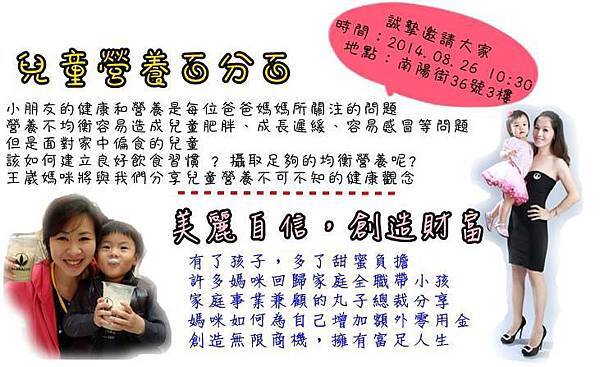 兒童營養百分百
誠摯邀請大家
時間：2014.08.26 10:30
地點：南陽街36號3樓
小朋友的健康和營養是每位爸爸媽媽所關注的問題
營養不均衡容易造成兒童肥胖、成長遲緩、容易感冒等問題
但是面對家中偏食的兒童
該如何建立良好飲食習慣 ? 攝取足夠的均衡營養呢?
王崴媽咪將與我們分享兒童營養不可不知的健康觀念
美麗自信，創造財富
有了孩子，多了甜蜜負擔
許多媽咪回歸家庭全職帶小孩
家庭事業兼顧的丸子總裁分享
媽咪如何為自己增加額外零用金
創造無限商機，擁有富足人生